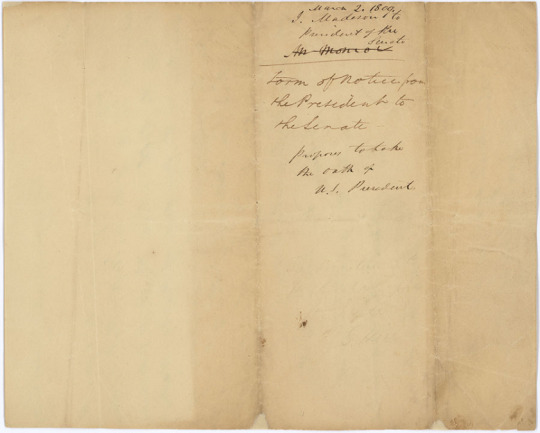 March 2. 1809.
J. Madison to
President of the
Senate
Mr Monroe
Form of Notice from
the President to
the Senate
proposes to take
the oath of
U.S. President